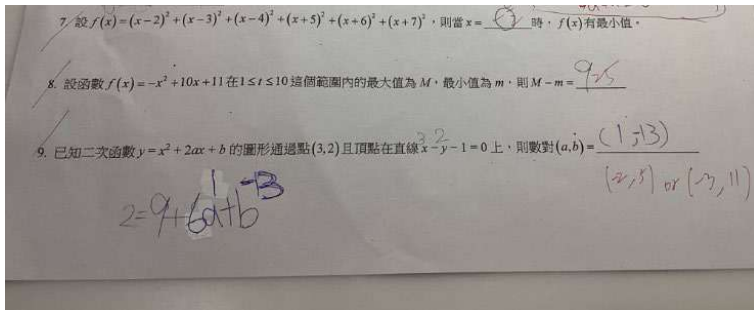 7. 設 f(x)=(x−2)²+(x−3)²+(x−4)²+(x+5)²+(x+6)²+(x+7)²，則當 x= 時，f(x)有最小值。
8. 設函數 f(x)=−x²+10x+11 在 1≤t≤10 這個範圍內的最大值為 M，最小值為 m，則 M−m= 25
3 2
9. 已知二次函數 y=x²+2ax+b 的圖形通過點(3,2)且頂點在直線 x−y−1=0 上，則數對(a,b)= (1,-13)
(-2,5) or (-3,11)
1 -13
2=9+6a+b